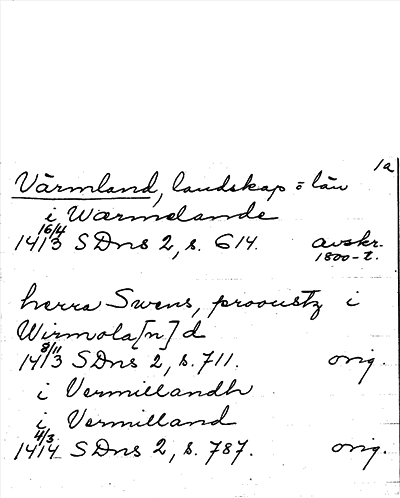 1a
Värmland, landskap o län
i Wærmelande
16/4 1413 SDns 2, s. 614. avskr. 1800-t.
herra Swens, prooustz i
Wirmola[n]d
8/11 1413 SDns 2, s. 711. orig.
i Vermillandh
i Vermilland
4/3 1414 SDns 2, s. 787. orig.